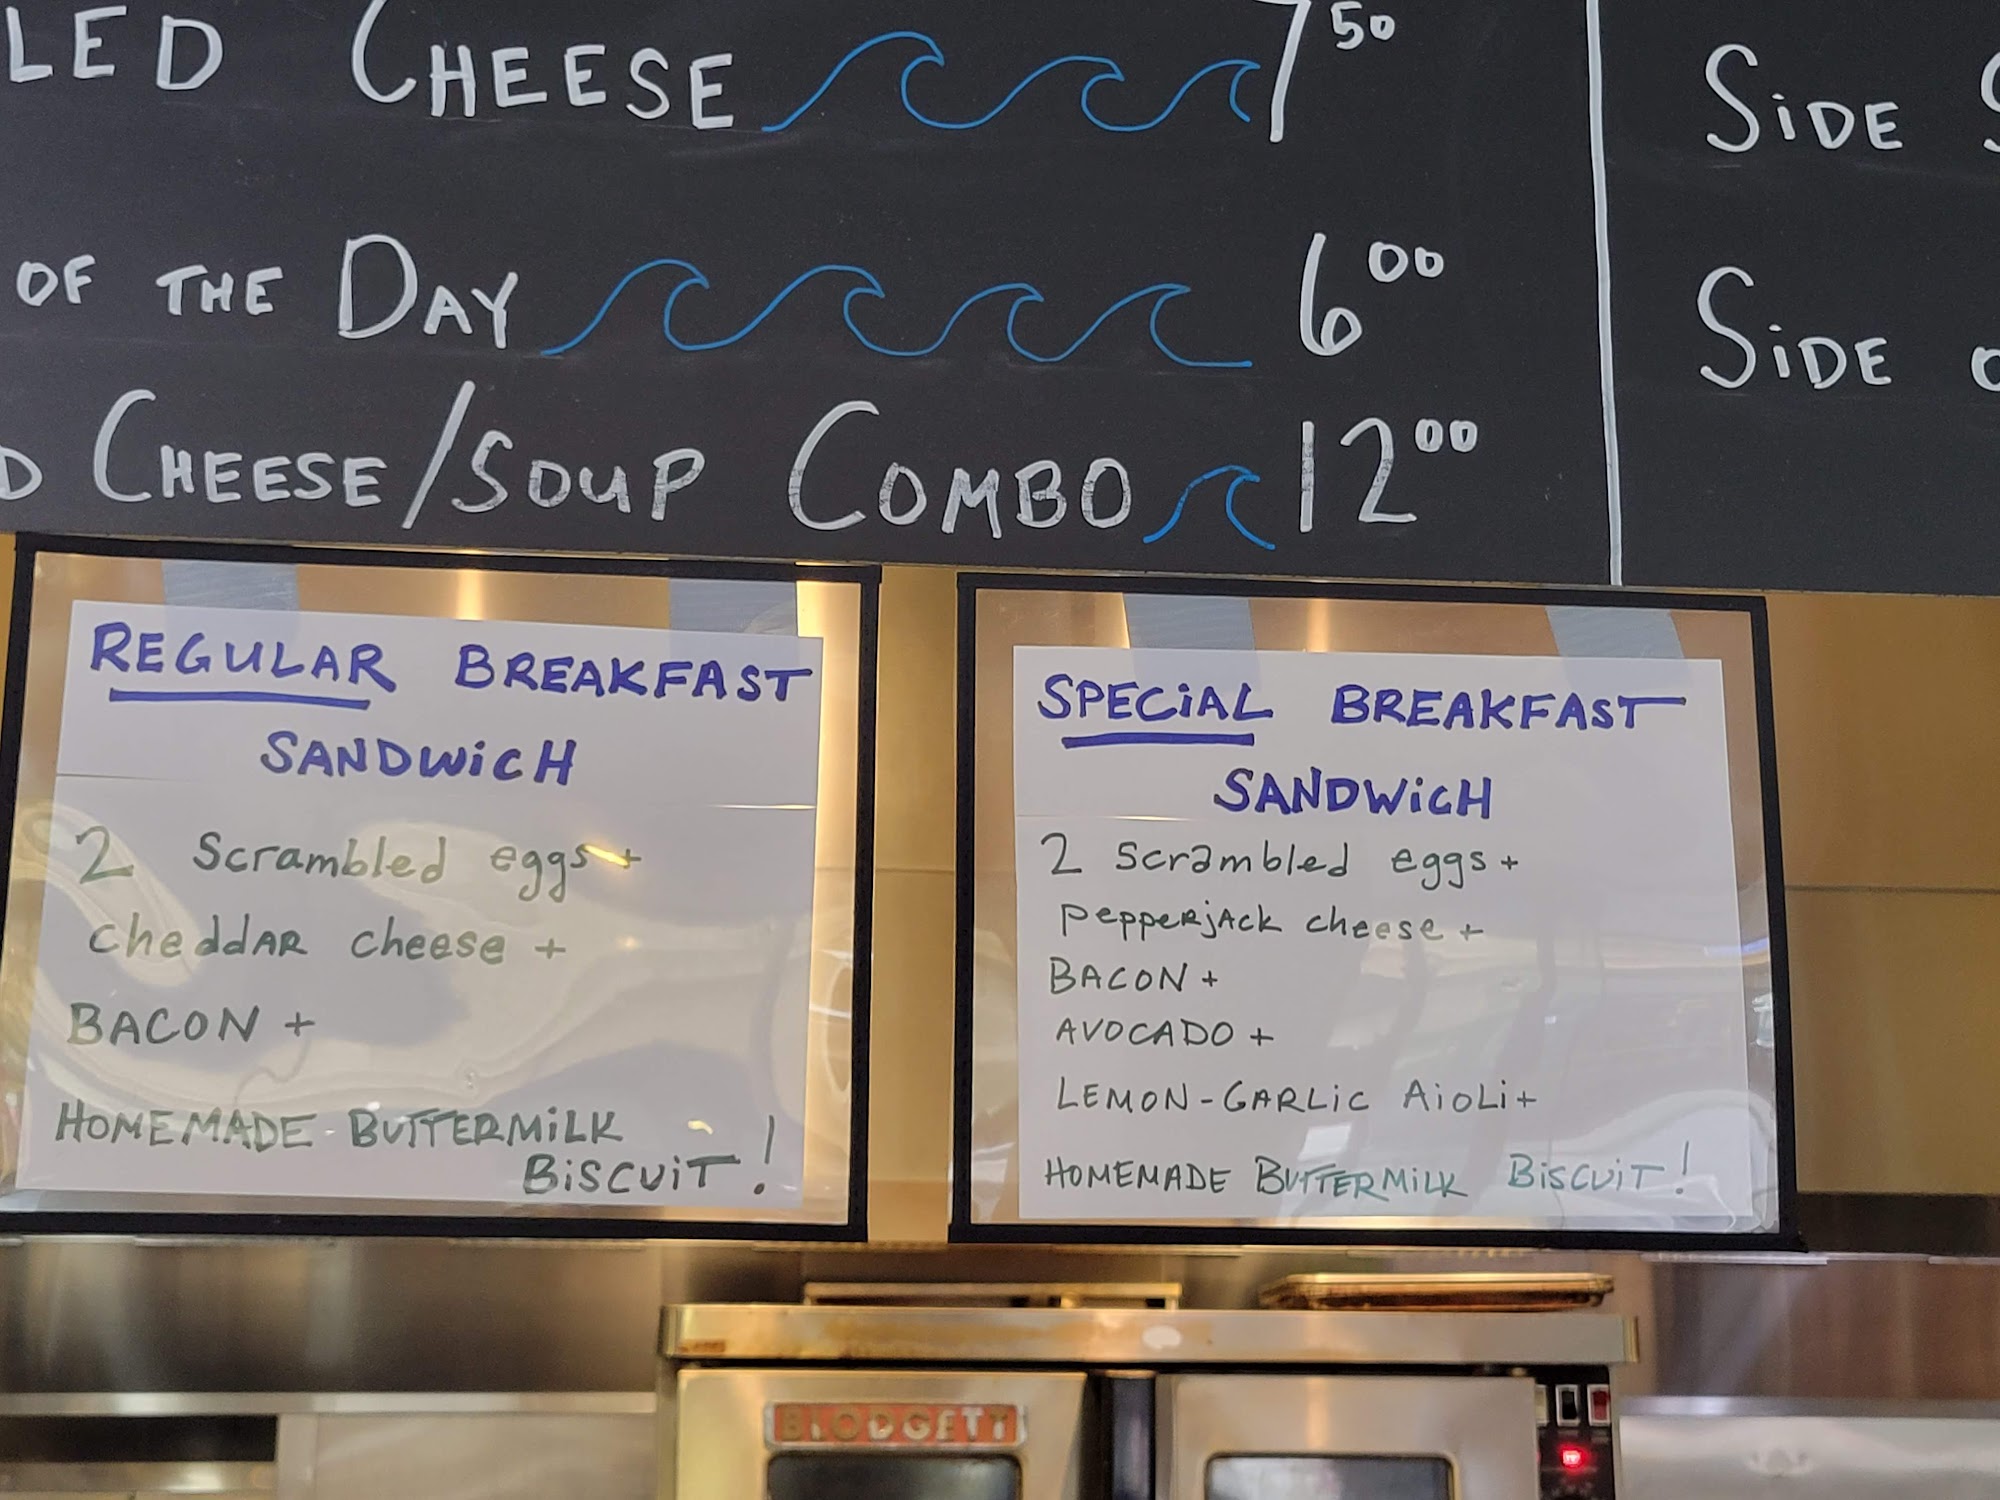 LED CHEESE 7 50
OF THE DAY 6 00
D CHEESE/SOUP COMBO 12 00
SiDE
SiDE
REGULAR BREAKFAST
SANDWiCH
2 Scrambled eggs +
cheddAR cheese +
BACON +
HOMEMADE BUTTERMiLK
BiSCUiT!
SPECiAL BREAKFAST
SANDWiCH
2 Scrambled eggs +
PepperjAck cheese +
BACON +
AVOCADO +
LEMON-GARLiC AiOLi +
HOMEMADE BUTTERMiLK BiSCUiT!
BLODGETT